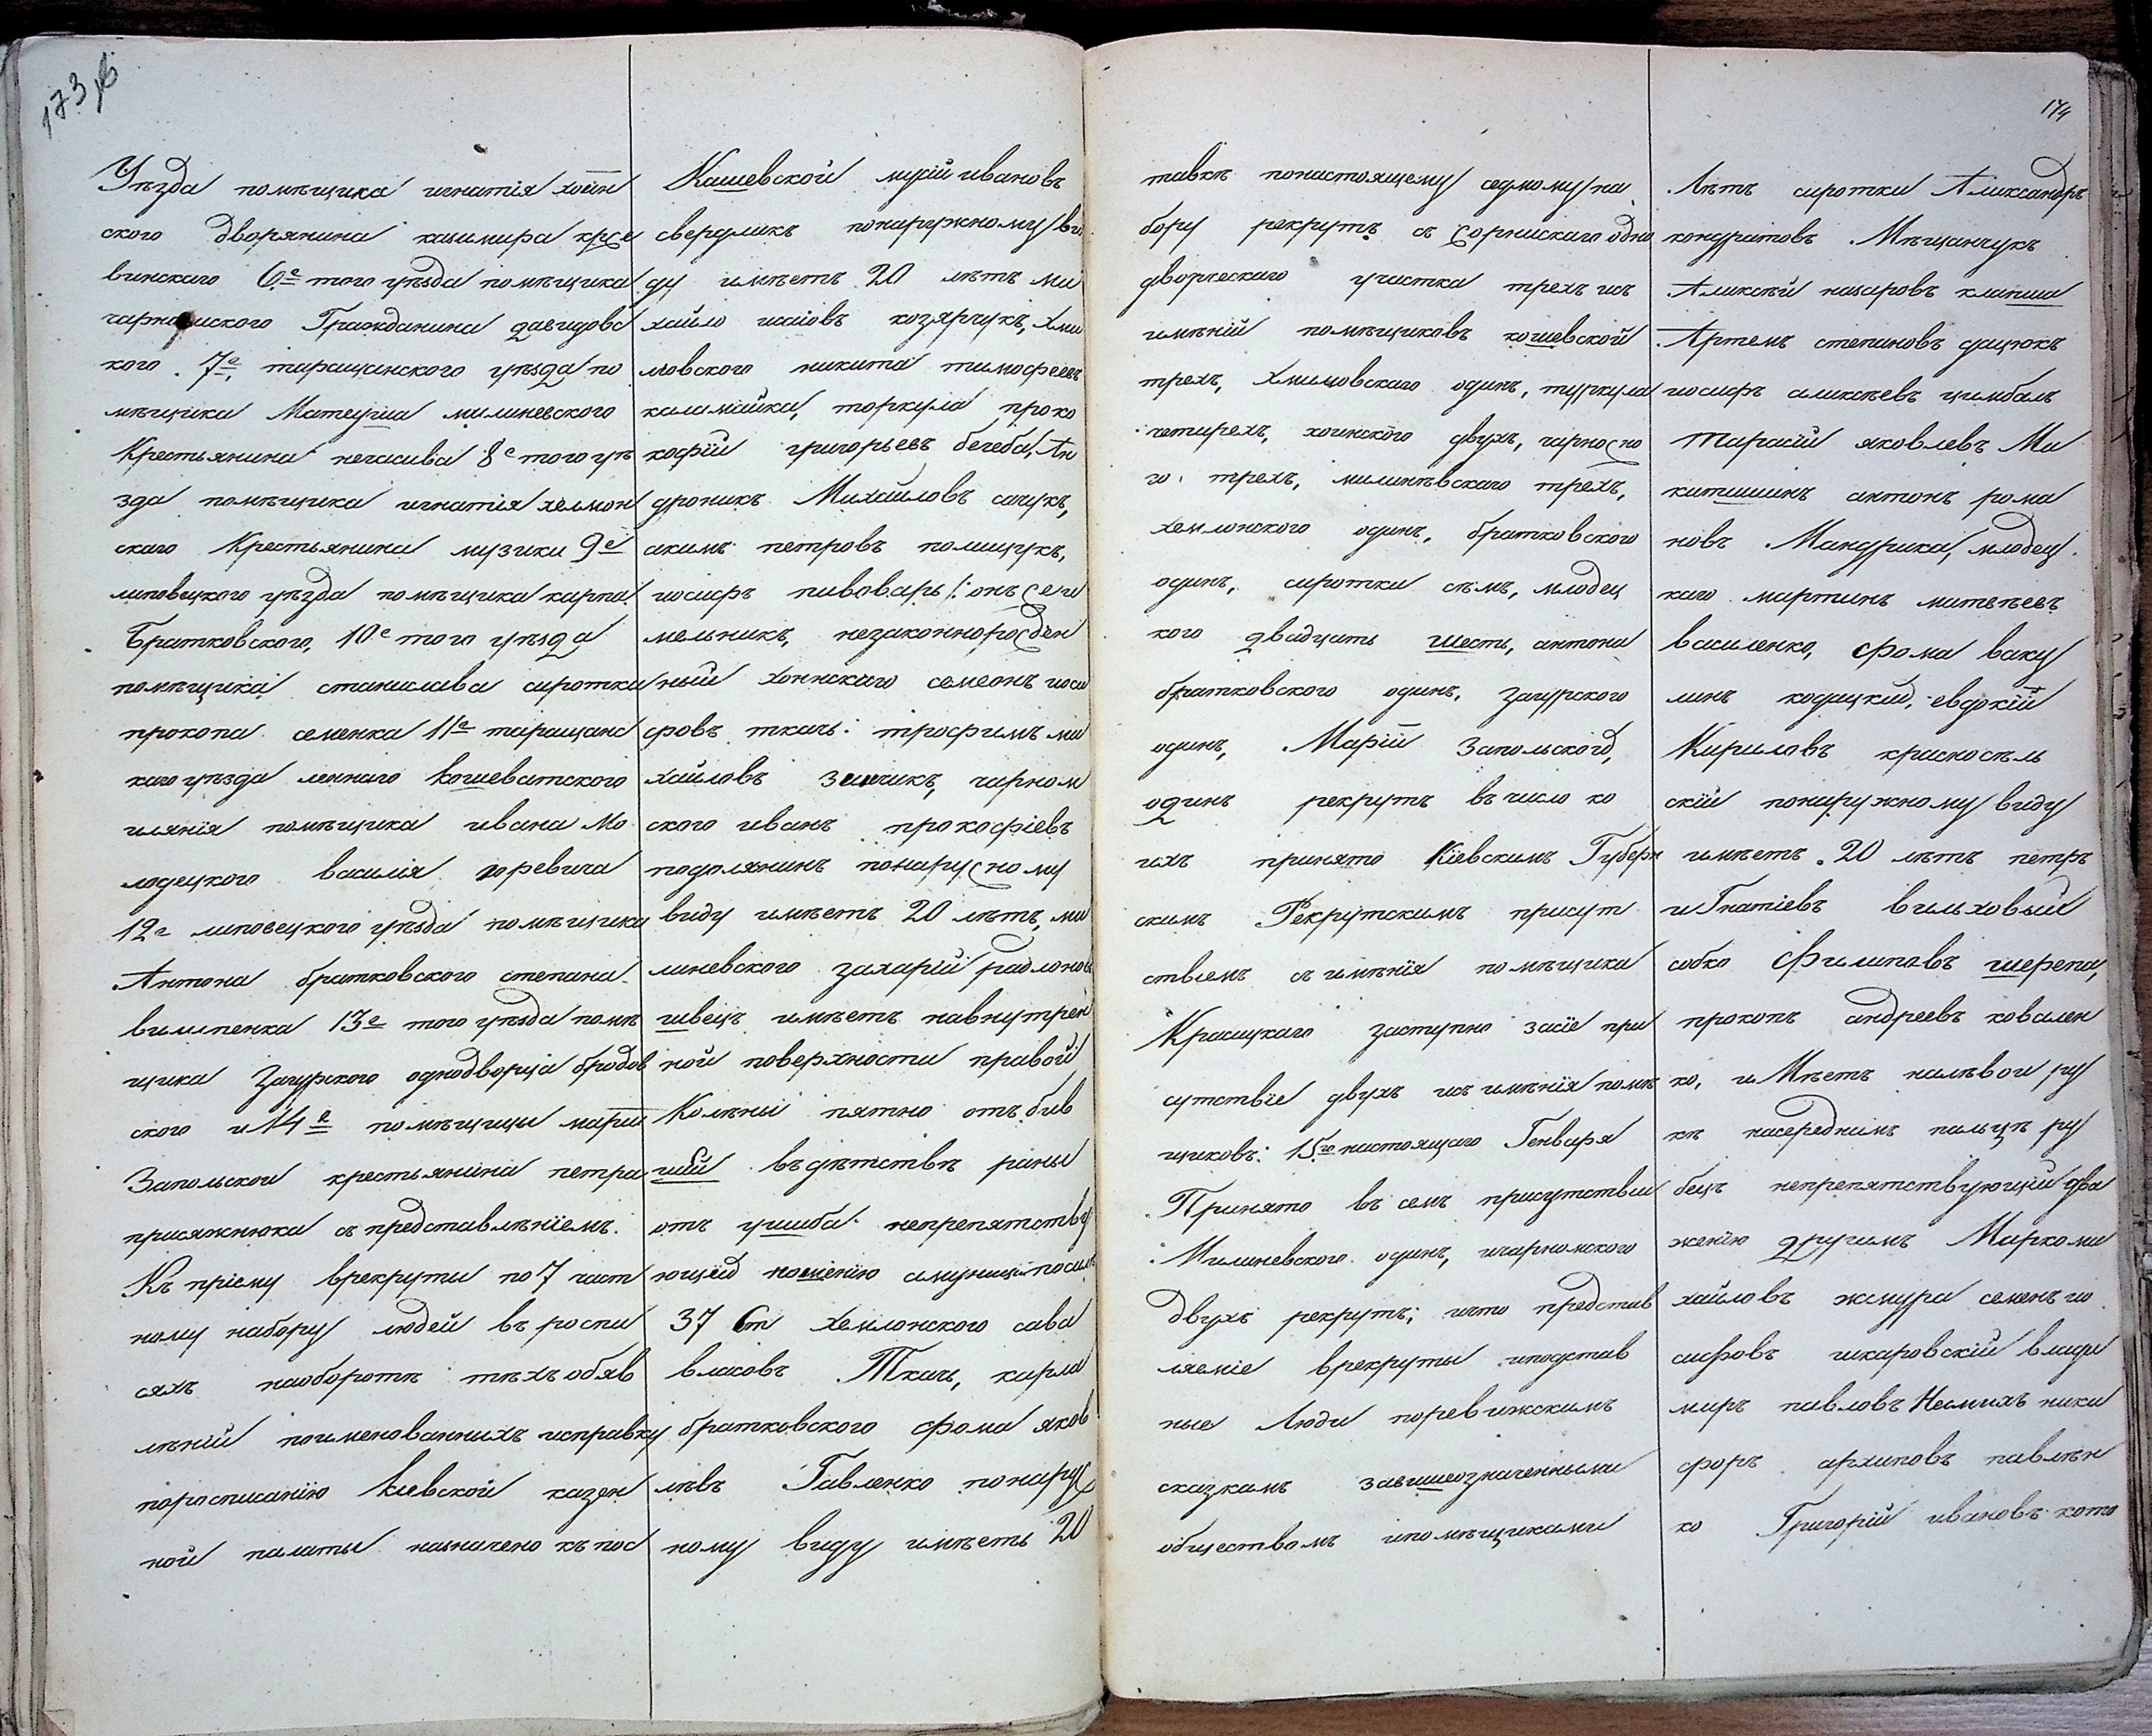 173 об
Уѣзда помѣщика игнатія хоин
ского дворянина казимира крсе
винскаго 6е того уѣзда помѣщика
чарномского Гражданина давидовс
кого. 7е таращанского уѣзда по
мѣщика Матеуша милиневского
Крестьянина нечаива 8е того уѣ
зда помѣщика игнатія хемлон
скаго Крестьянина музики 9е
липовецкого уѣзда помѣщика карла
Братковского, 10е того уѣзда
помѣщика станислава сиротки
прокопа семенка 11е таращанс
каго уѣзда леннаго кошеватского
имянія помѣщика ивана Мо
лодецкого василія юревича
12е липовецкого уѣзда помѣщика
Антона братковского степана
вилипенка 13е того уѣзда помѣ
щика Загурского однодворца бродов
ского и 14е помѣщицы маріи
Запольской крестьянина петра
присяжнюка съ представлѣніемъ.
Къ пріему врекруты по 7 част
ному набору людей въ роспи
сяхъ наоборотѣ тѣхъ обяв
лѣній поименованныхъ исправку
поросписанію Киевской казен
ной палаты назначено къ пос
Кашевской мусій ивановъ
свердликъ понаружному ви
ду имѣетъ 20 лѣтъ ми
хайло исаіовъ козярчукъ, Хми
ловского никита тимофеевъ
каламайка, торкула проко
кофій григорьевъ бегеба, Ан
дроникъ Михайловъ сачукъ,
акимъ петровъ полищукъ,
иосифъ пивоваръ /: онъ же и
мельникъ, незаконнорожден
ный хоинскаго семеонъ иоси
фовъ ткачь: трофимъ ми
хайловъ заичикъ, чарном
ского иванъ прокофіевъ
подолянинъ понаружному
виду имѣетъ 20 лѣтъ, ми
линевского захарій радионовъ
швецъ имѣетъ навнутрен
ной поверхности правой
Колѣни пятно отъ бив
шей въдѣтствѣ раны
отъ ушиба непрепятству
ющей ношенію амуниціи посил
37 Ст хемлонского сава
власовъ Ткачь, карла
братковского фома яков
лѣвъ Гавленко понаруж
ному виду имѣетъ 20
174
тавкѣ понастоящему седмому на
бору рекрутъ съ Сорнискаго одно
дворческаго участка трехъ исъ
имѣній помѣщиковъ кошевской
трехъ, Хмиловскаго одинъ, туркула
четирехъ, хоинского двухъ, чарносно
го трехъ, милинѣвскаго трехъ,
хемлонского одинъ, братковского
одинъ, сиротки сѣмъ, млодец
кого двадцать шесть, антона
братковского одинъ, загурского
одинъ, Маріи Запольской,
одинъ рекрутъ въ число ко
ихъ принято Кіевскимъ Губерн
скимъ Рекрутскимъ присут
ствіемъ съ имѣнія помѣщика
Красицкаго заступно засіе при
сутствіе двухъ исъ имѣнія помѣ
щиковъ: 15го настоящаго Генваря
Принято въ семъ присутствіи
Милиневского одинъ, ичарномского
двухъ рекрутъ; ичто представ
ляеміе врекруты иподстав
ные Люди поревижскимъ
сказкамъ завишеозначенными
обществомъ ипомѣщиками
Лѣтъ сиротки Александръ
кондратовъ Мѣщанчукъ
Алексѣй назаровъ клапша
Артемъ степановъ сацюкъ
иосифъ аликсѣевъ цимбалъ
Тарасій яковлевъ Ми
китишинъ антонъ рома
новъ Мандрика, млодец
каго мартинъ матвѣевъ
василенко, фома ваку
линъ кодацкий, евдокій
Кириловъ красносѣль
скій понаружному виду
имѣетъ 20 лѣтъ петръ
иГнатіевъ вильховый
собко Филиповъ шерепа,
прокопъ андреевъ ковален
ко, иМѣетъ налѣвой ру
кѣ насереднимъ пальцѣ ру
бецъ непрепятствующій дви
женію другимъ Марко ми
хайловъ жмура семенъ ио
сифовъ шкаровскій влади
миръ павловъ Немихъ ники
форъ архиповъ павлѣн
ко Григорій ивановъ кото